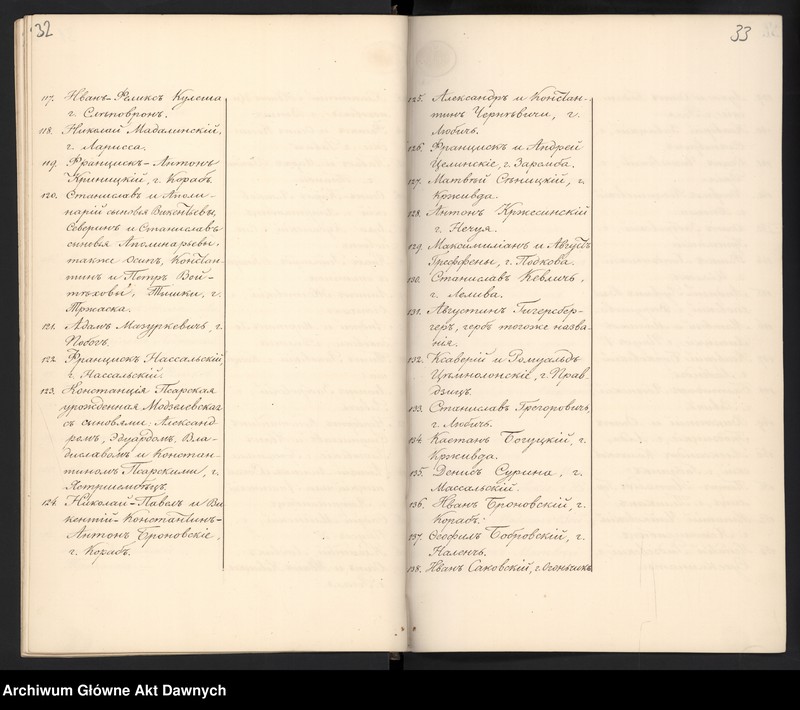 32
117. Иванъ-Феликсъ Кулеша
г. Слѣповронъ.
118. Николай Мадалинскій,
г. Ларисса.
119. Францискъ-Антонъ
Криницкій, г. Корабъ.
120. Станиславъ и Аполи-
нарій сыновья Викентьевы,
Северинъ и Станиславъ
сыновья Аполинарьевы,
также Осипъ, Констан-
тинъ и Петръ Вой-
тѣховы, Тышки, г.
Тржаска.
121. Адамъ Мазуркевичъ, г.
Побогъ.
122. Францискъ Нассальскій,
г. Нассальскій.
123. Констанція Псарская
урожденная Модзелевская
съ сыновями: Александ-
ромъ, Эдуардомъ, Вла-
диславомъ и Констан-
тиномъ Псарскими, г.
Ястржембецъ.
124. Николай-Павелъ и Ви
кентій-Константинъ-
Антонъ Броновскіе,
г. Корабъ.
33
125. Александръ и Констан-
тинъ Чернѣвичи, г.
Любичъ.
126. Францискъ и Андрей
Целинскіе, г. Заремба.
127. Матвѣй Сѣницкій, г.
Крживда.
128. Антонъ Кржесинскій
г. Нечуя.
129. Максимиліанъ и Августъ
Греффены, г. Подкова.
130. Станиславъ Кевличъ,
г. Лелива.
131. Августинъ Гигерсбер-
геръ, гербъ тогоже назва-
нія.
132. Ксаверій и Ромуальдъ
Цѣмнолонскіе, г. Прав
дзицъ.
133. Станиславъ Грогоровичъ,
г. Любичъ.
134. Каетанъ Богуцкій, г.
Крживда.
135. Денисъ Сурина, г.
Массальскій.
136. Иванъ Броновскій, г.
Корабъ.
137. Ѳеофилъ Бобровскій, г.
Наленчъ.
138. Иванъ Саковскій, г. Огоньчикъ
Archiwum Główne Akt Dawnych